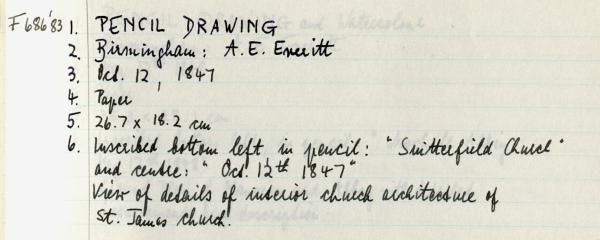 F686'83 1. PENCIL DRAWING
2. Birmingham: A.E. Everitt
3. Oct. 12, 1847
4. Paper
5. 26.7 x 18.2 cm
6. Inscribed bottom left in pencil: "Snitterfield Church"
and centre: "Oct. 12th 1847"
View of details of interior church architecture of
St. James church.